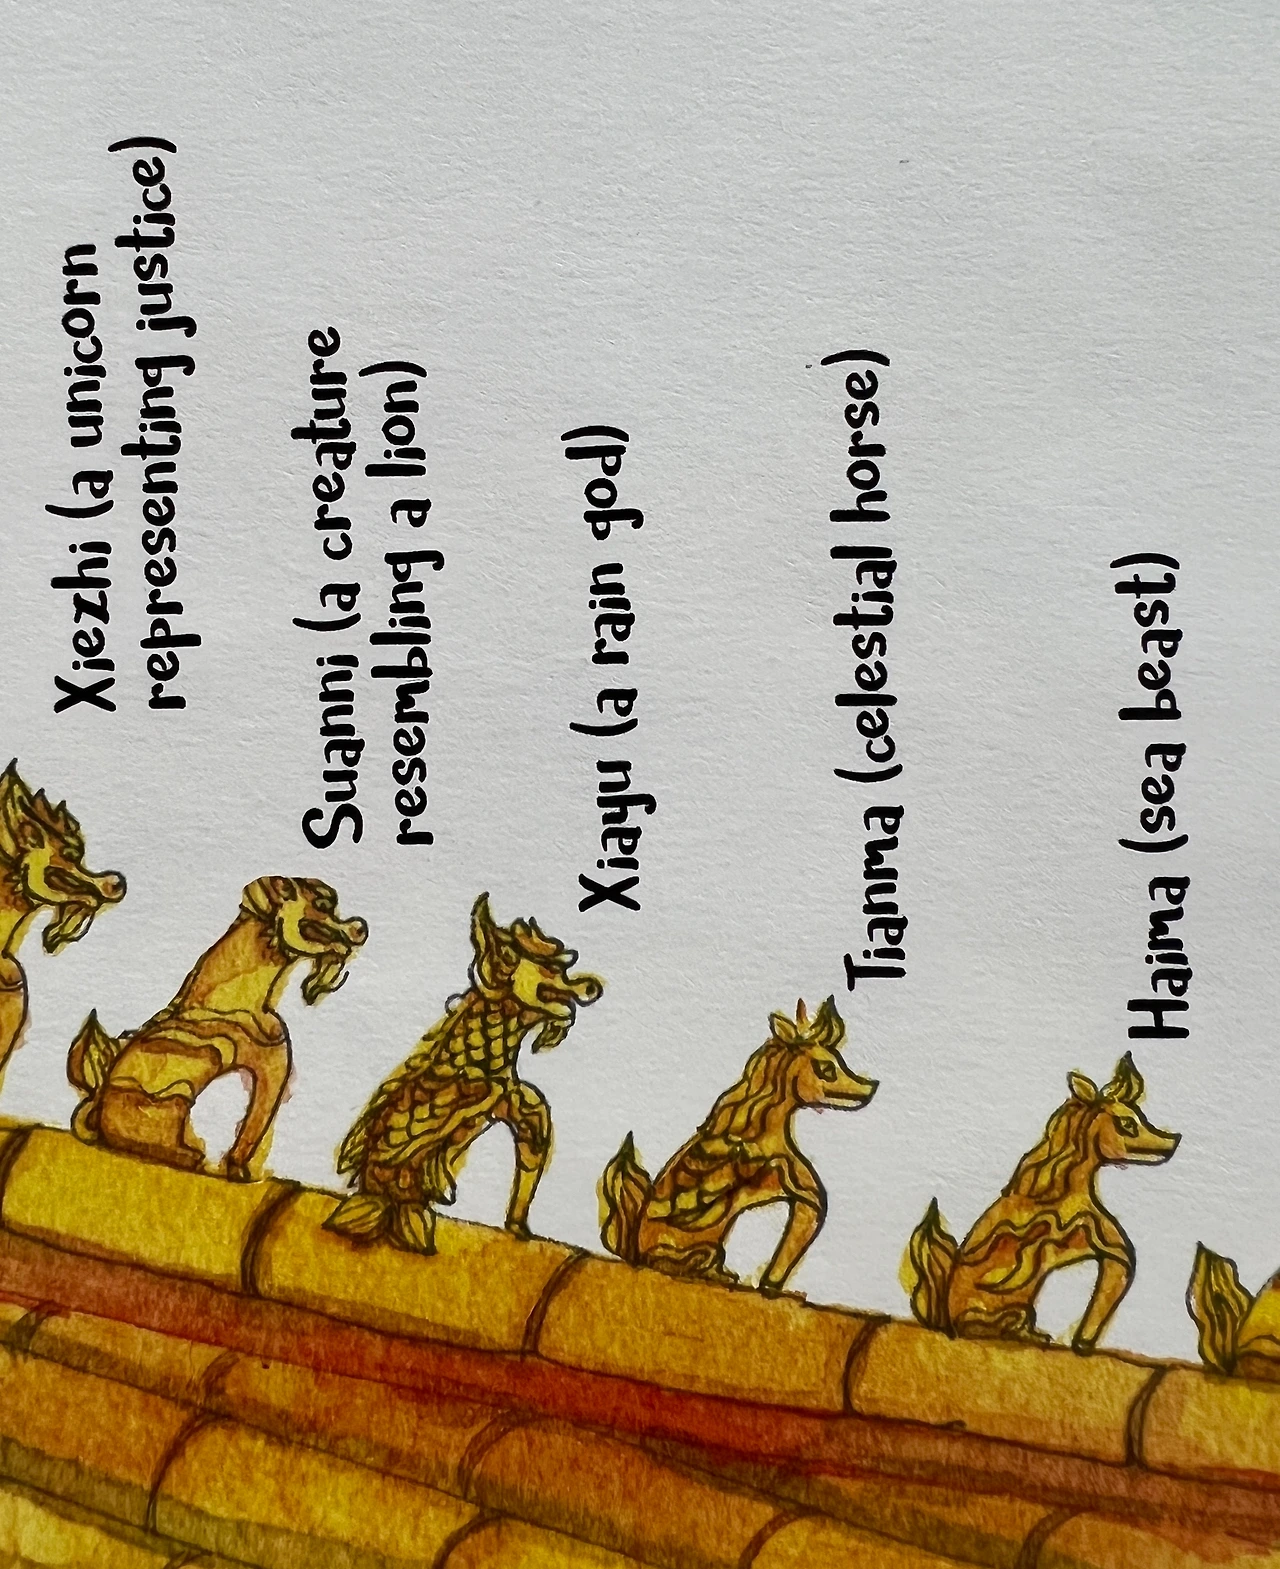 Xiezhi (a unicorn
representing justice)
Suanni (a creature
resembling a lion)
Xiayu (a rain god)
Tianma (celestial horse)
Haima (sea beast)